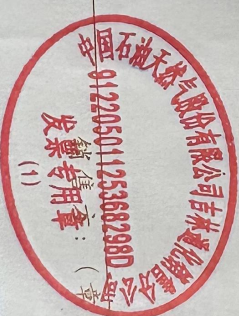 中国石油天然气股份有限公司吉林通化销售分公司
91220501125368298D
销售方：（章
发票专用章
(1)